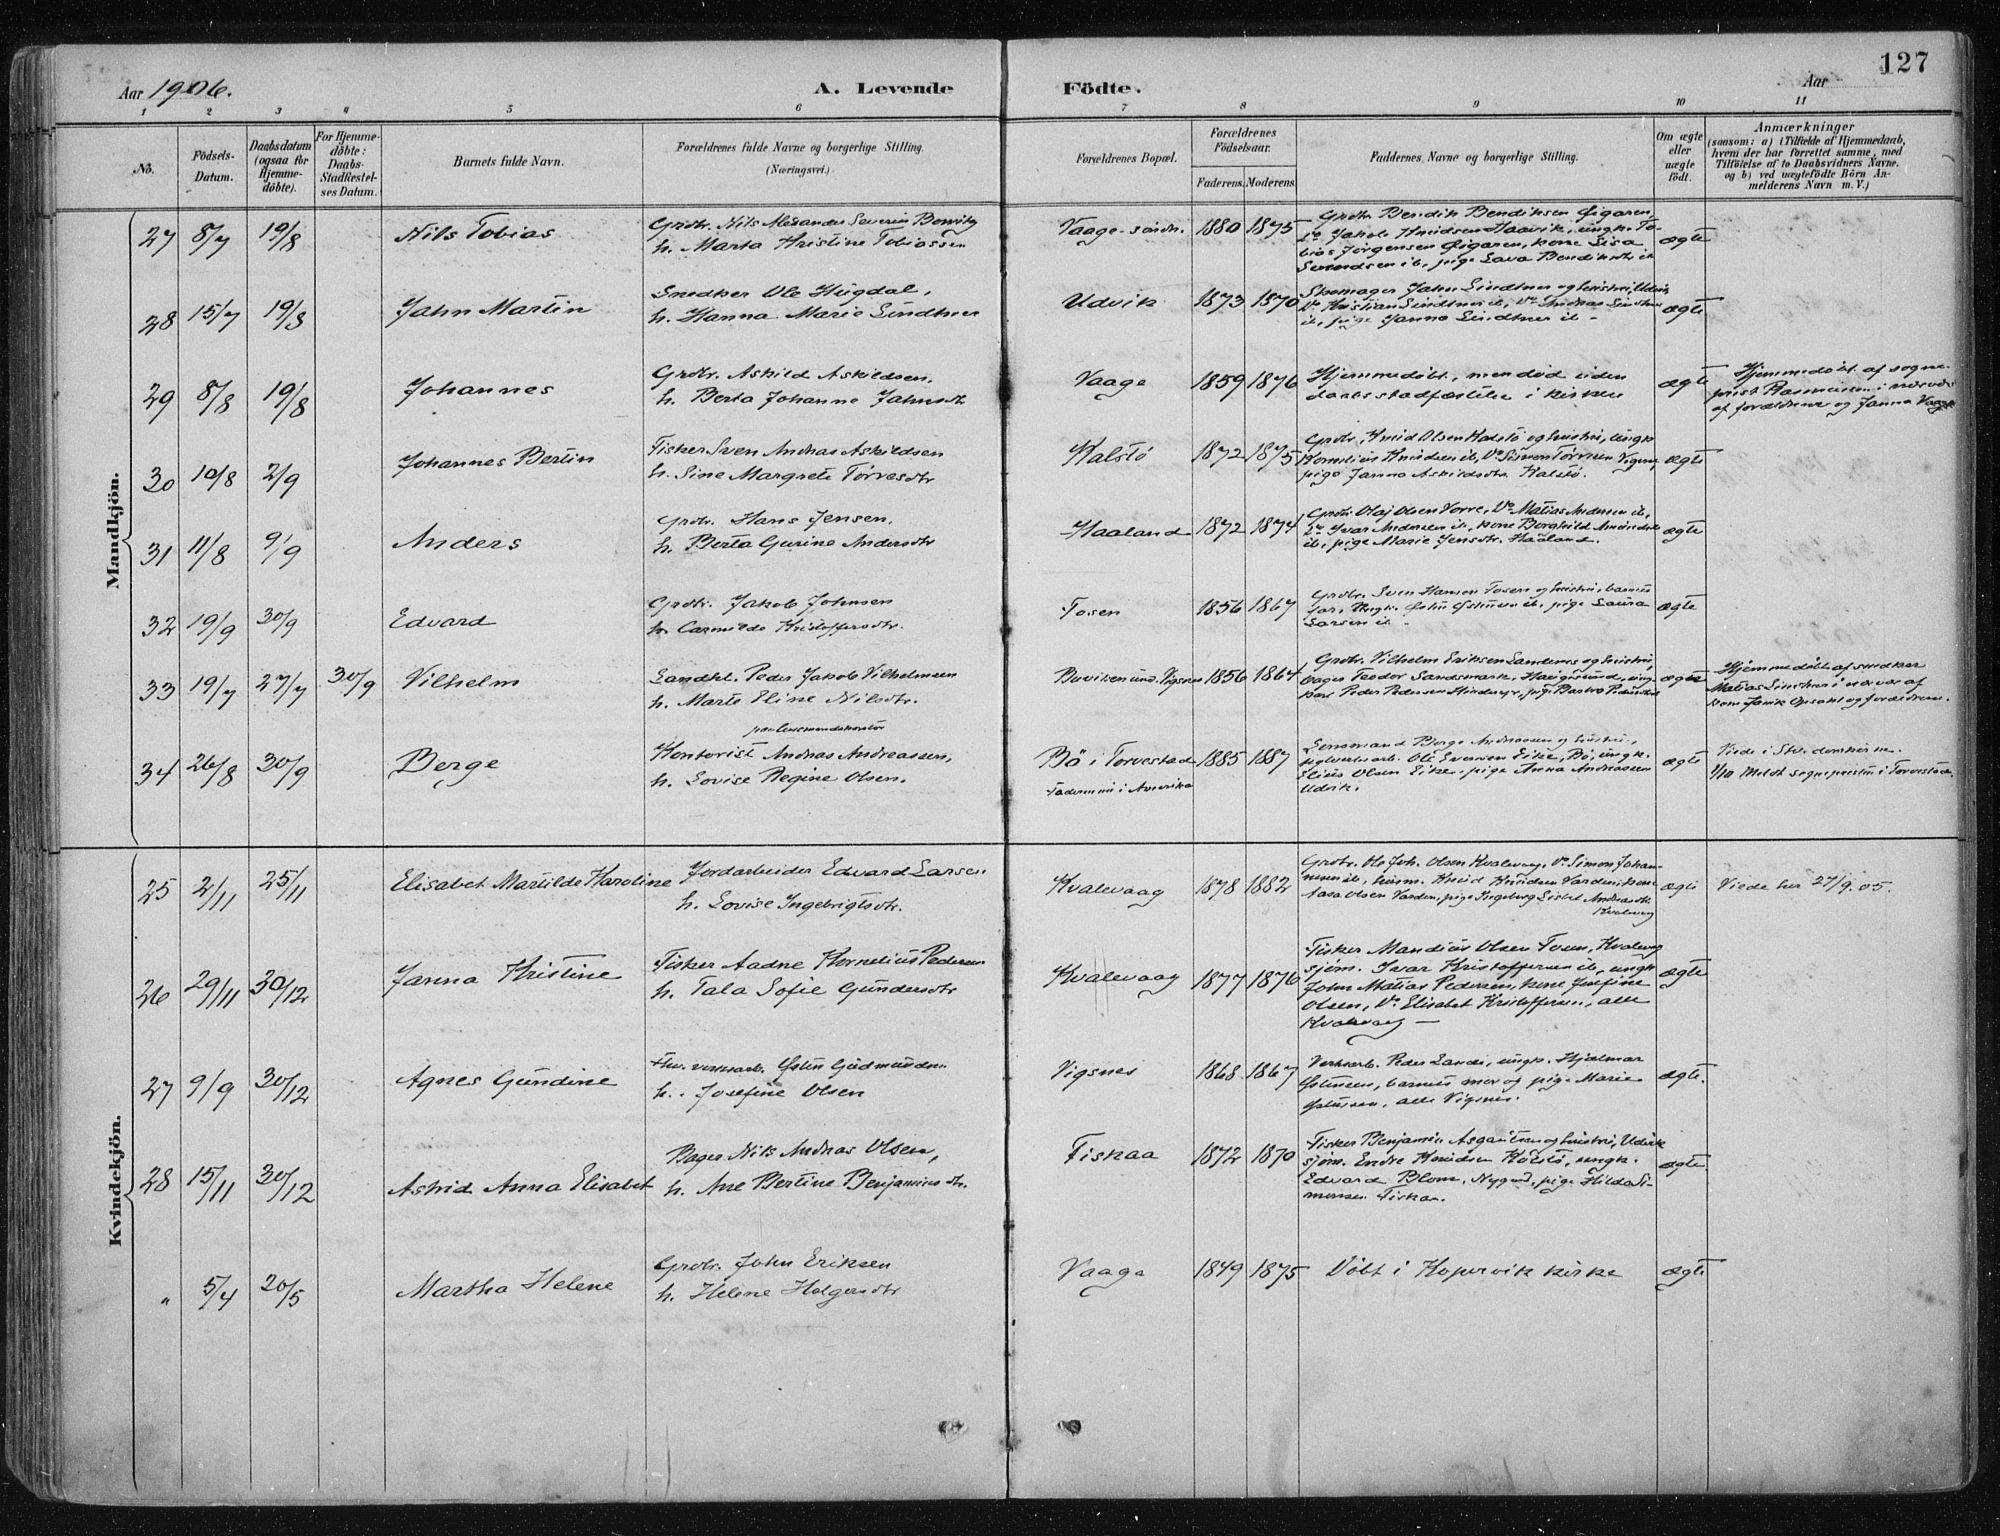 127
Aar 1906.
A. Levende Födte.
Aar
1 2 3 4 5 6 7 8 9 10 11
No.
Födsels-Datum.
Daabsdatum (ogsaa for Hjemme-döbte).
For Hjemme-döbte: Daabs-Stadfæstel-ses Datum.
Barnets fulde Navn.
Forældrenes fulde Navne og borgerlige Stilling. (Næringsvei.)
Forældrenes Bopæl.
Forældrenes Födselsaar.
Faderens. Moderens.
Faddernes Navne og borgerlige Stilling.
Om ægte eller uægte födt.
Anmærkninger (saasom: a) i Tilfælde af Hjemmedaab, hvem der har forrettet samme, med Tilföielse af to Daabsvidners Navne, og b) ved uægtefödte Börn An-melderens Navn m. V.)
Mandkjön.
27 8/7 19/8 Nils Tobias
Grdbr. Nils Alexander Severin
h. Marta Kristine Tobiassen
Vaage 1880 1875
Grdbr. Bendik Bendiksen
Jakob Knudsen Haavik, ungk. To-
bias Jörgensen kone Lisa
Svendsen ib, pige Lava
ægte
28 15/7 19/8 Jahn Martin
Snedker Ole Hugdal,
h. Hanna Marie Lindtner
Udvik 1873 1870
Skomager Jahn Lindtner og hustru, Udvik
Kristian Lindtner ib, Do Andreas
ib, pige Janna Lindtner ib -
ægte
29 8/8 19/8 Johannes
Grdbr. Askild Askildsen,
h. Berta Johanne Jahnsdtr
Vaage 1859 1876
Hjemmedöbt, men död uden
daabsstadfæstelse i kirken
ægte
Hjemmedöbt af sogne-
prest Rasmussen i nærvær
af forældrene og Janna Vaage
30 10/8 2/9 Johannes Bertin
Fisker Sven Andreas Askildsen
h. Sine Margrete Törresdtr
Kalstö 1872 1875
Grdbr. Knud Olsen Kalstö og hustru, ungk
Kornelius Knudsen ib, Do Simon
pige Janna Askildsdtr. Kalstö.
ægte
31 11/8 9/9 Anders
Grdbr. Hans Jensen,
h. Berta Gurine Andersdtr
Haaland 1872 1874
Grdbr Olaj Olsen Vorre, Do Matias Andersen ib,
Do Ivar Andersen ib, kone Borghild
ib, pige Marie Jensdtr. Haaland.
ægte
32 19/9 30/9 Edvard
Grdbr. Jakob Johnsen
h. Carmilde Kristoffersdtr.
Fosen 1856 1867
Grdbr. Sven Hansen Fosen og hustru, barnets
far, ungk. Östen Östensen ib, pige Laura
Larsen ib -
ægte
33 19/7 27/7 30/9 Vilhelm
Landkl. Peder Jakob Vilhelmsen
h. Marte Eline Nilsdtr.
Vigsnes 1856 1864
Grdbr. Vilhelm Eriksen Sandenes og hustru,
bager Teodor Sandsmark, Haugesund, ung-
karl Peder Pedersen pige
ægte
Hjemmedöbt af snedker
Matias Lindtner i nærvær af
kone og forældrene.
34 26/8 30/9 Berge
paa lensmandskontor
Kontorist Andreas Andreassen,
h. Lovise Regine Olsen.
Bö i Torvestad
Faderen nu i Amerika
1885 1887
Lensmand Berge Andreassen og hustru,
Ole Eversen Eike, Bö, ungk.
Elius Olsen Eike, pige Anna Andreassen
Udvik.
ægte
Viede i
1/10 Meldt sognepresten i Torvestad.
Kvindekjön.
25 2/11 25/11 Elisabet Martilde Karoline
Jordarbeider Edvard Larsen
h. Lovise Ingebrigtsdtr.
Kvalevaag 1878 1882
Grdbr. Ole Joh. Olsen Kvalevaag, Do Simon Johan-
nesen ib, husm. Knud Knudsen Varden, kone
Olsen Varden, pige Ingeborg Andreasdtr.
Kvalevaag
ægte
Viede her 27/9.05.
26 29/11 30/12 Janna Kristine
Fisker Aadne Kornelius Pedersen
h. Tala Sofie Gundersdtr
Kvalevaag 1877 1876
Fisker Mandius Olsen Kvalevaag
sjöm. Ivar Kristoffersen ib, ungk
John Matias Pedersen, kone Josefine
Olsen, Do Elisabet Kristoffersen, alle
Kvalevaag -
ægte
27 9/9 30/12 Agnes Gundine
verksarb. Östen Gudmundsen
h. Josefine Olsen
Vigsnes 1868 1867
Verksarb. Peder Lande, ungk. Hjalmar
Östensen, barnets mor og pige Marie
Östensen, alle Vigsnes.
ægte.
28 15/11 30/12 Astrid Anna Elisabet
Bager Nils Andreas Olsen,
h. Ane Bertine Benjaminsdtr.
Fiskaa 1872 1870
Fisker Benjamin Asgautsen og hustru, Udvik
sjöm. Endre Knudsen Kalstö, ungk.
Edvard Blom, Nygaard, pige Hilda Si-
monsen Fiskaa.
ægte.
" 5/4 20/5 Martha Helene
Grdbr. John Eriksen
h. Helene Holgersdtr
Vaage 1849 1875
Döbt i Kopervik kirke
ægte